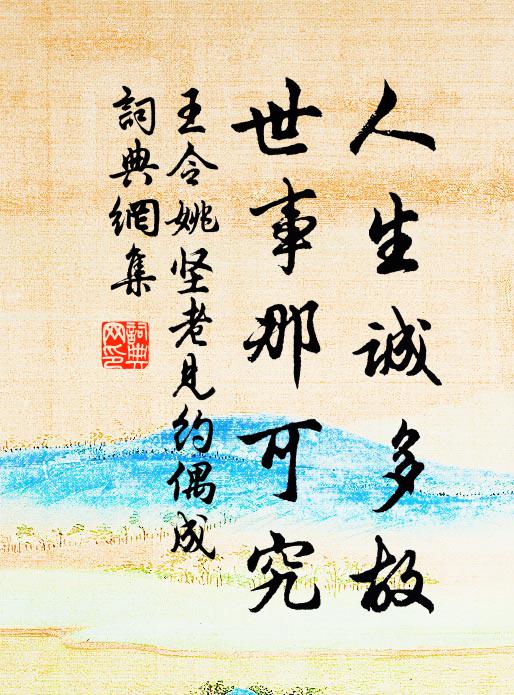 人生誠多故
世事那可究
王令姚坚老見約偶成
詞典網集
詞典网印